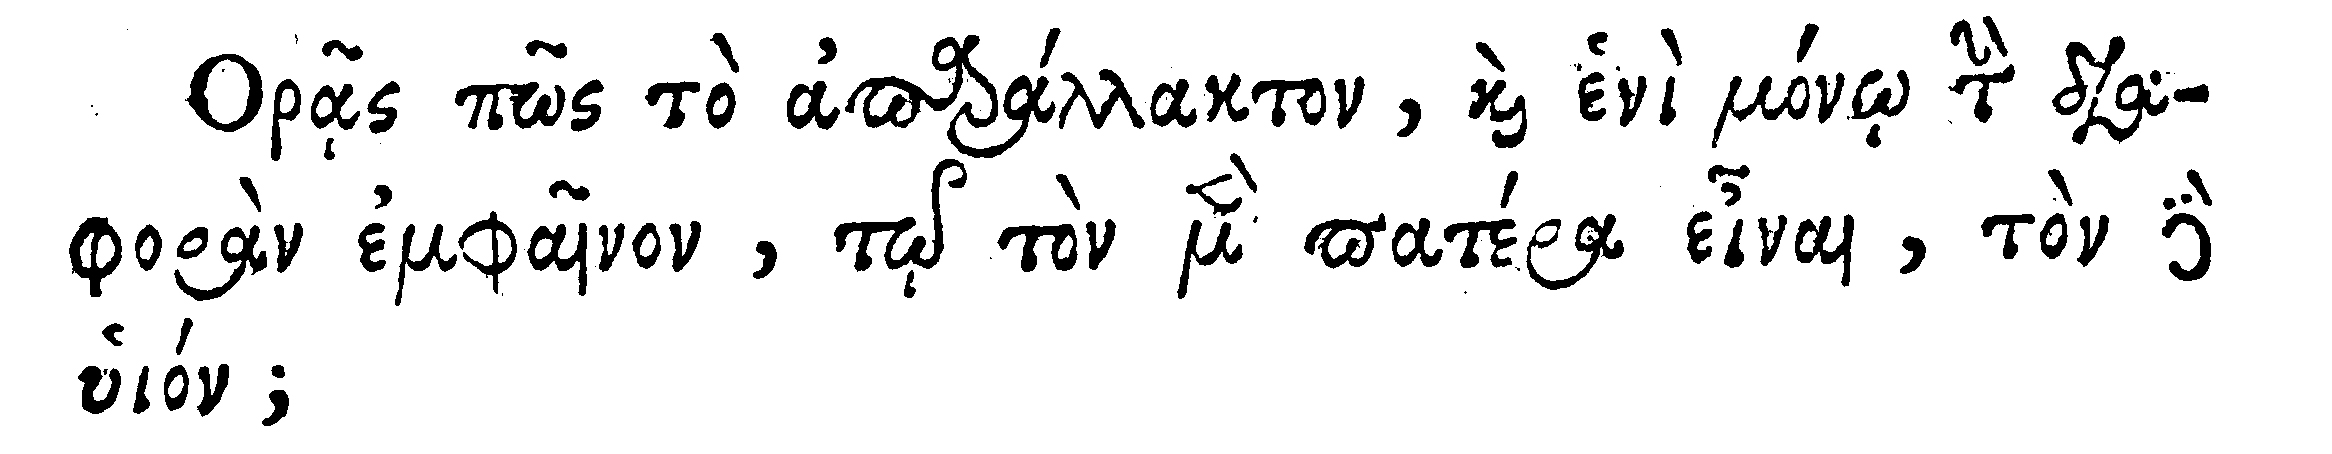 Ορᾷς πῶς τὸ ἀπαράλλακτον, καὶ ἑνὶ μόνῳ τὴν δια-
φορὰν ἐμφαῖνον, τῷ τὸν μὲν πατέρα εἶναι, τὸν δὲ
ὑιόν;